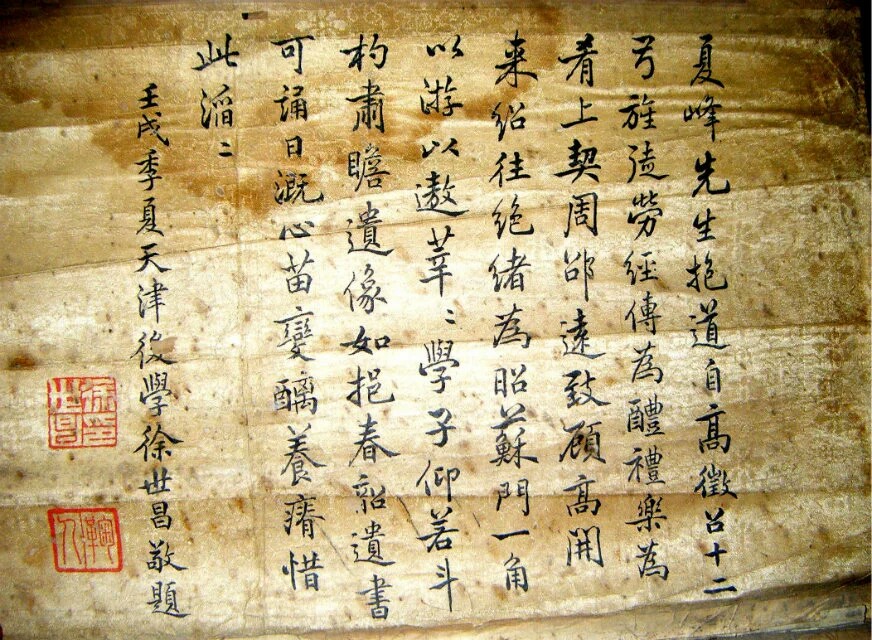 夏峰先生抱道自高徵召十二
弓旌徒勞經傳為醴禮樂為
肴上契周邵遠致顧高開
来紹往絶緒為昭蘇門一角
以游以遨莘〻學子仰若斗
杓肅瞻遺像如挹春韶遺書
可誦日溉心苗變醨養瘠惜
此滔〻
壬戌季夏天津後學徐世昌敬題
徐世昌
鞠人